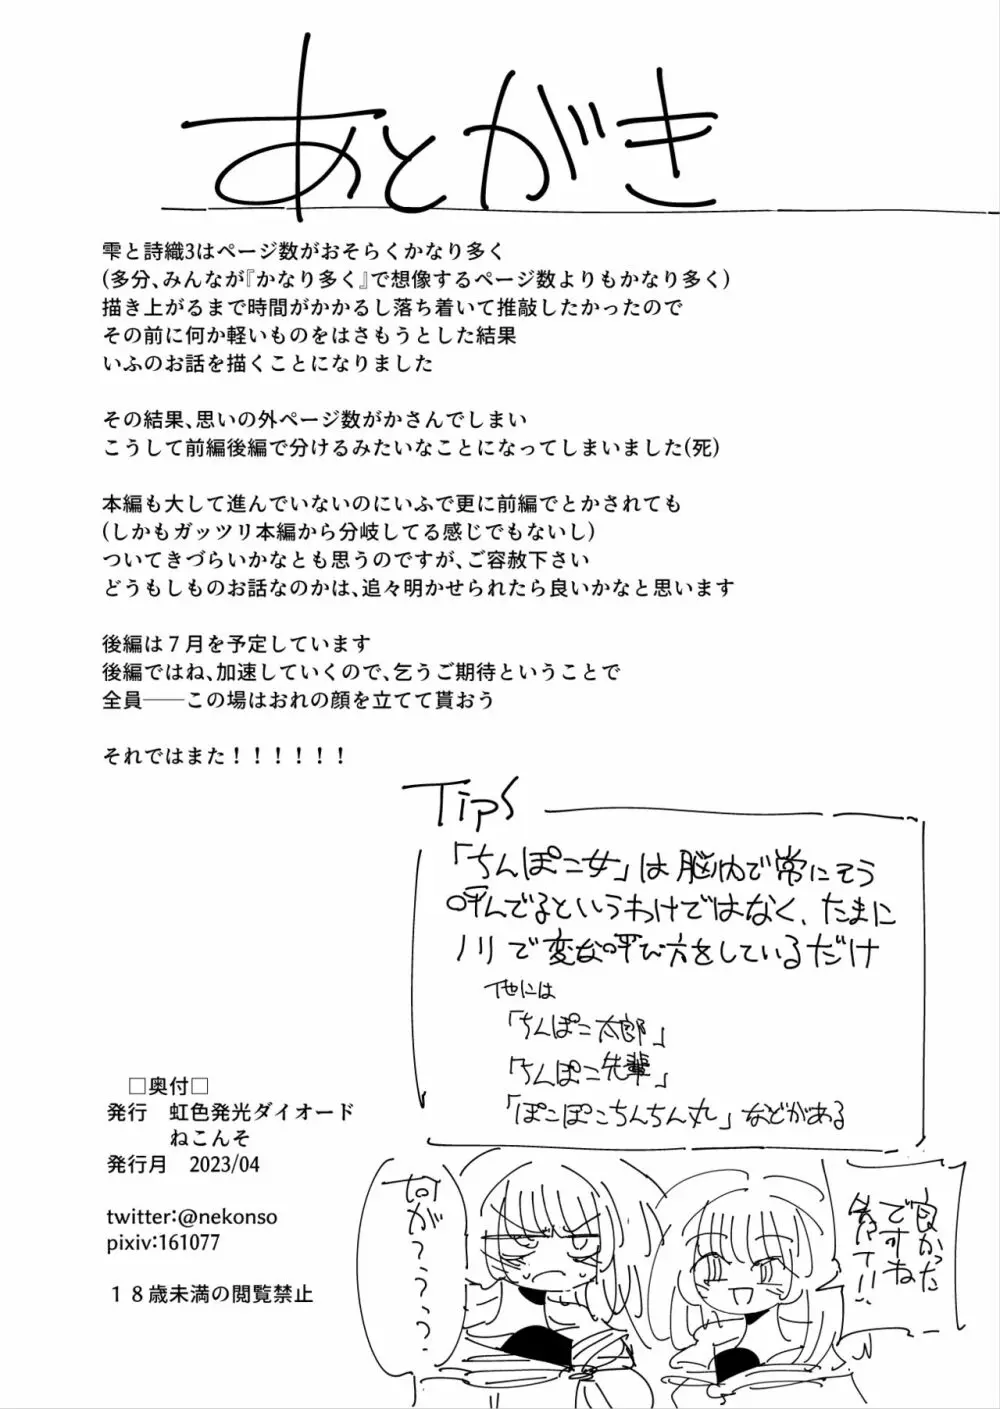 あとがき
雫と詩織3はページ数がおそらくかなり多く
(多分、みんなが『かなり多く』で想像するページ数よりもかなり多く)
描き上がるまで時間がかかるし落ち着いて推敲したかったので
その前に何か軽いものをはさもうとした結果
いふのお話を描くことになりました
その結果、思いの外ページ数がかさんでしまい
こうして前編後編で分けるみたいなことになってしまいました(死)
本編も大して進んでいないのにいふで更に前編でとかされても
(しかもガッツリ本編から分岐してる感じでもないし)
ついてきづらいかなとも思うのですが、ご容赦下さい
どうもしものお話なのかは、追々明かせられたら良いかなと思います
後編は７月を予定しています
後編ではね、加速していくので、乞うご期待ということで
全員――この場はおれの顔を立てて貰おう
それではまた！！！！！！
Tips
「ちんぽこ女」は脳内で常にそう
呼んでるというわけではなく、たまに
ノリで変な呼び方をしているだけ
他には
「ちんぽこ太郎」
「ちんぽこ先輩」
「ぽこぽこちんちん丸」などがある
□奥付□
発行　虹色発光ダイオード
ねこんそ
発行月　2023/04
twitter:@nekonso
pixiv:161077
１８歳未満の閲覧禁止
良かった
ですね
先輩!!
何が？？？？